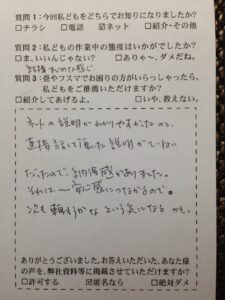 質問1：今回私どもをどちらでお知りになりましたか？
□チラシ □電話 ☑ネット □紹介・その他
質問2：私どもの作業中の態度はいかがでしたか？
□ま、いいんじゃない？ □ありゃ～、ダメだね。
質問3：畳やフスマでお困りの方がいらっしゃったら、
私どもをご推薦いただけますか？
□紹介してあげるよ。 □いや、教えない。
ネットの説明がわかりやすかったこと、
直接 説明がていねい
だったので、納得感がありました。
それは 安心感につながるので。
次も頼もうかな という気になる かも。
ありがとうございました。お答えいただいた、あなた様
の声を、弊社資料等に掲載させていただけますか？
□許可する ☑匿名なら □絶対ダメ